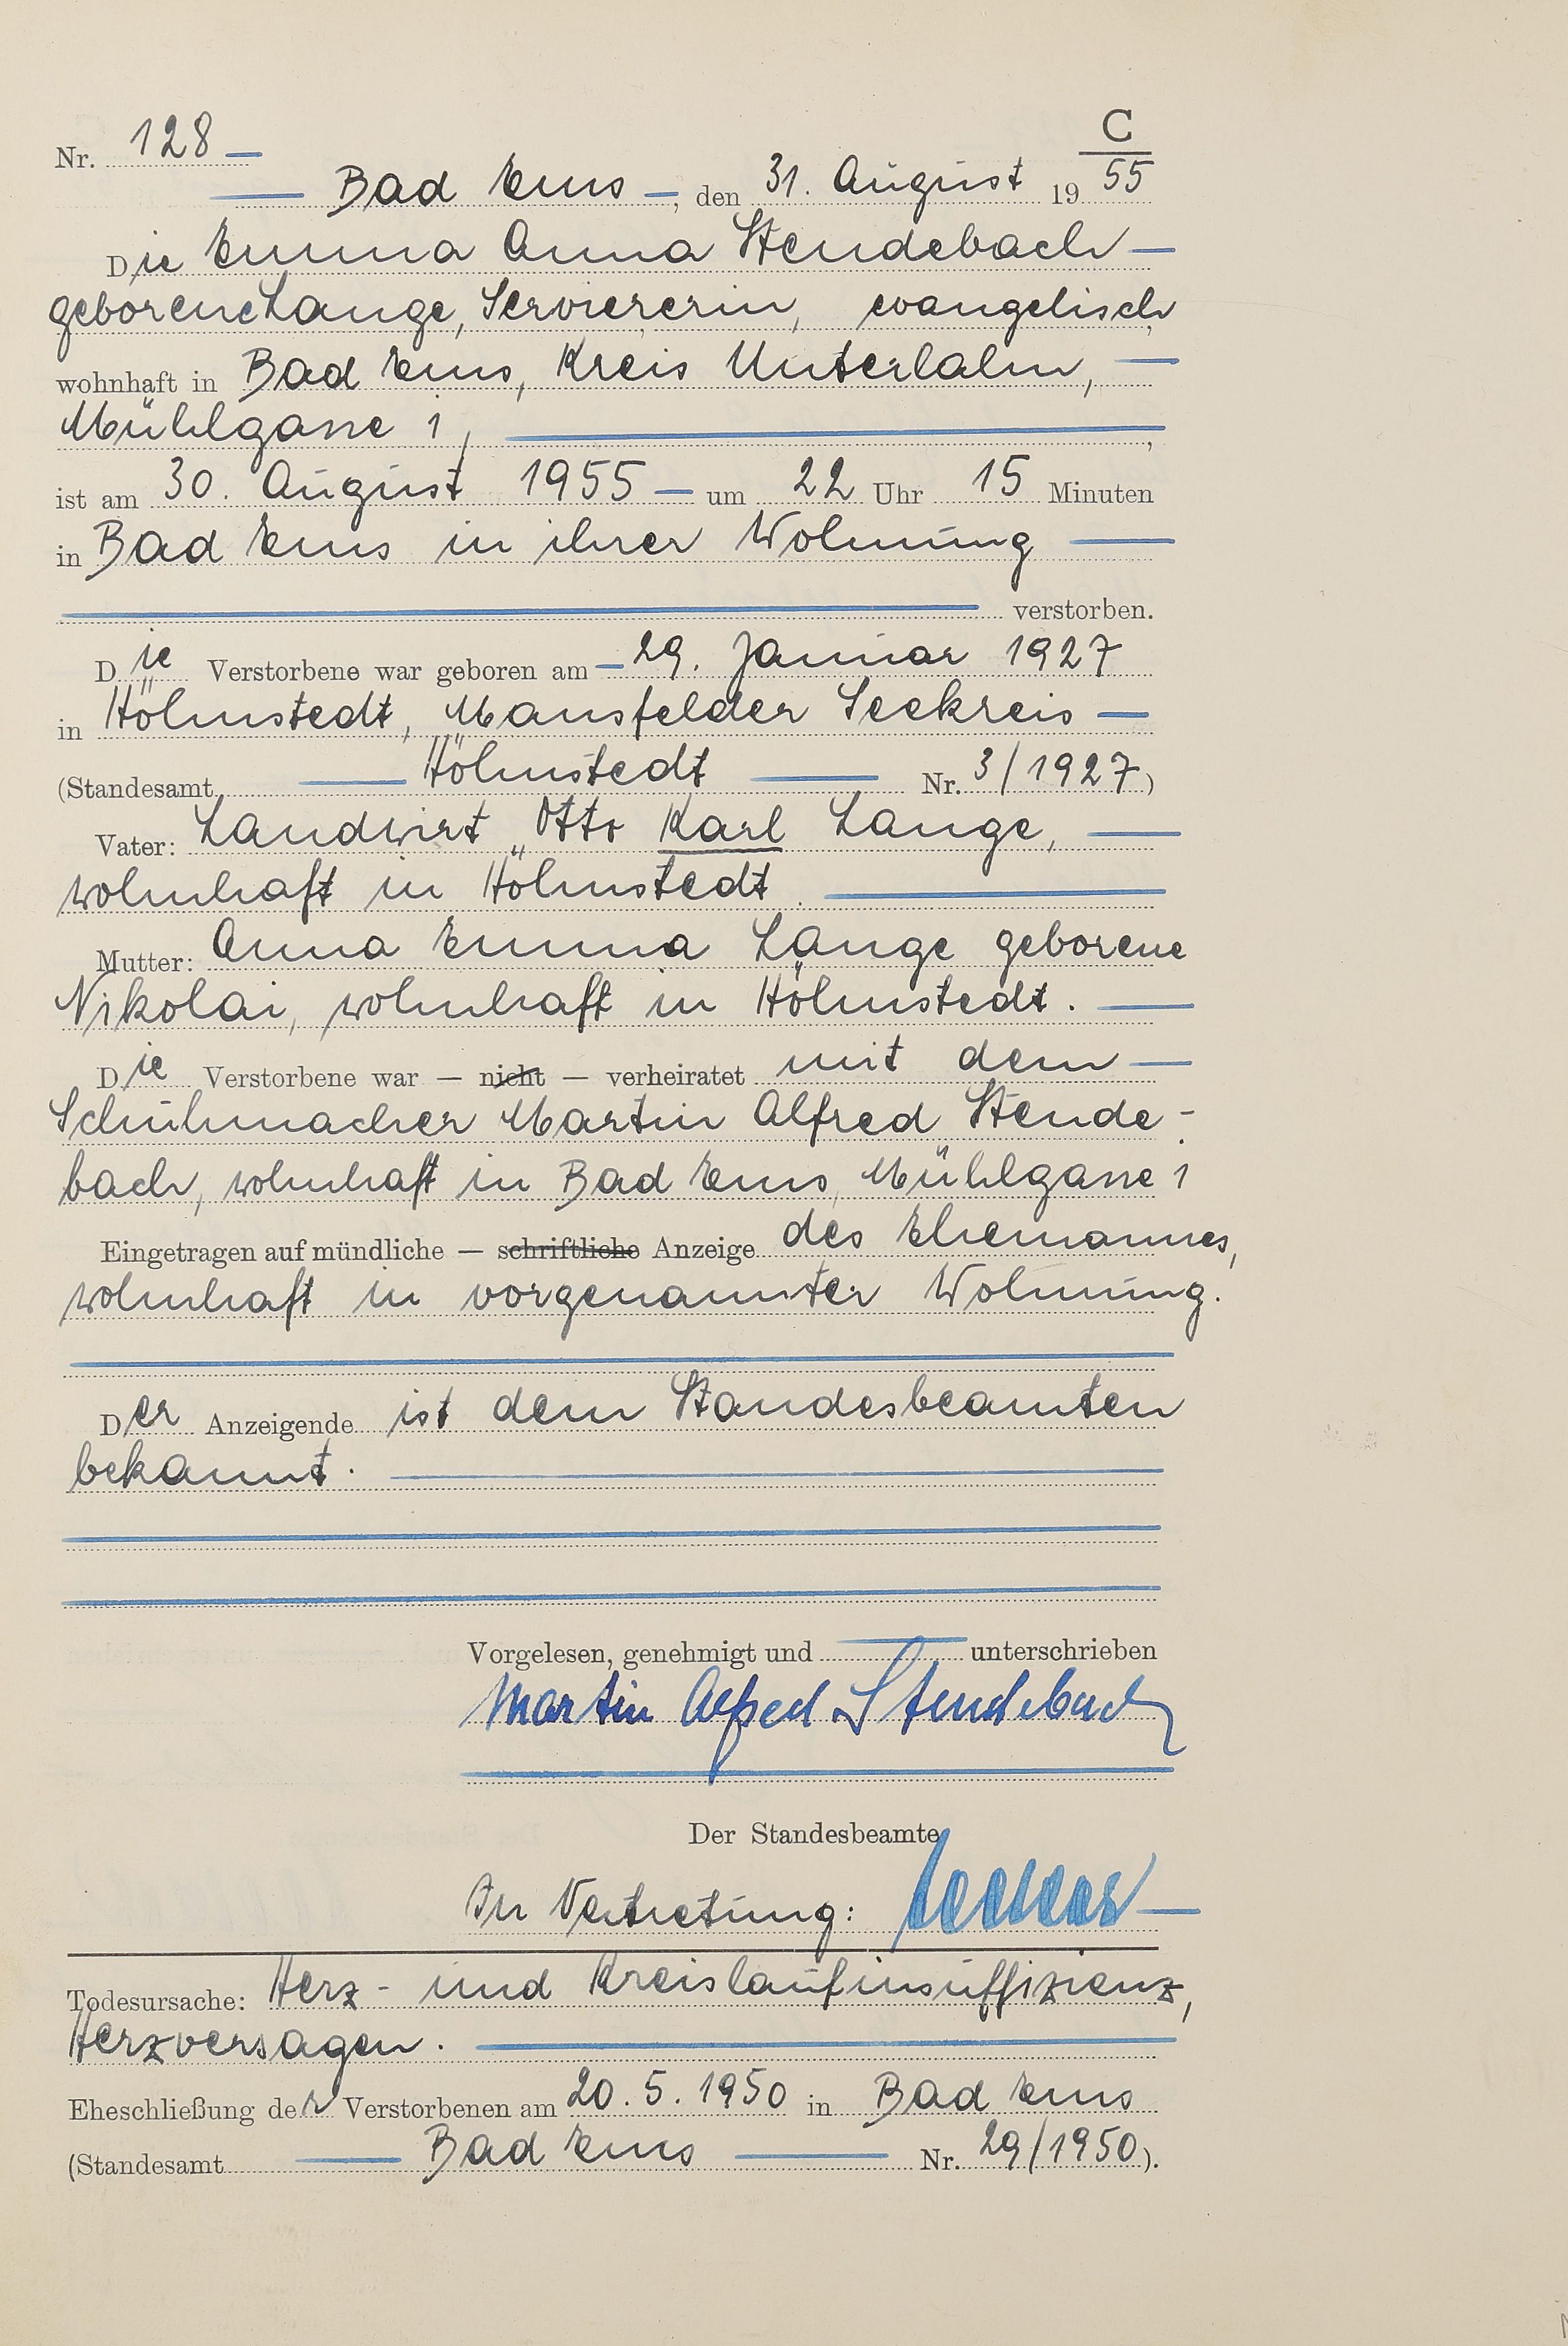 C
Nr. 128
Bad Ems, den 31. August 19 55
Die Emma Anna Stendebach
geborene Lange, Serviererin, evangelisch
wohnhaft in Bad Ems, Kreis Unterlahn,
Mühlgasse 1,
ist am 30. August 1955 um 22 Uhr 15 Minuten
in Bad Ems in ihrer Wohnung
verstorben.
Die Verstorbene war geboren am 29. Januar 1927
in Höhnstedt, Mansfelder Seekreis
(Standesamt Höhnstedt Nr. 3/1927)
Vater: Landwirt Otto Karl Lange,
wohnhaft in Höhnstedt.
Mutter: Anna Emma Lange geborene
Nikolai, wohnhaft in Höhnstedt.
Die Verstorbene war – nicht – verheiratet mit dem
Schuhmacher Martin Alfred Stende-
bach, wohnhaft in Bad Ems, Mühlgasse 1
Eingetragen auf mündliche – schriftliche Anzeige des Ehemannes,
wohnhaft in vorgenannter Wohnung.
Der Anzeigende ist dem Standesbeamten
bekannt.
Vorgelesen, genehmigt und unterschrieben
Martin Alfred Stendebach
Der Standesbeamte
In Vertretung:
Todesursache: Herz- und Kreislaufinsuffizienz,
Herzversagen.
Eheschließung der Verstorbenen am 20.5.1950 in Bad Ems
(Standesamt Bad Ems Nr. 29/1950).